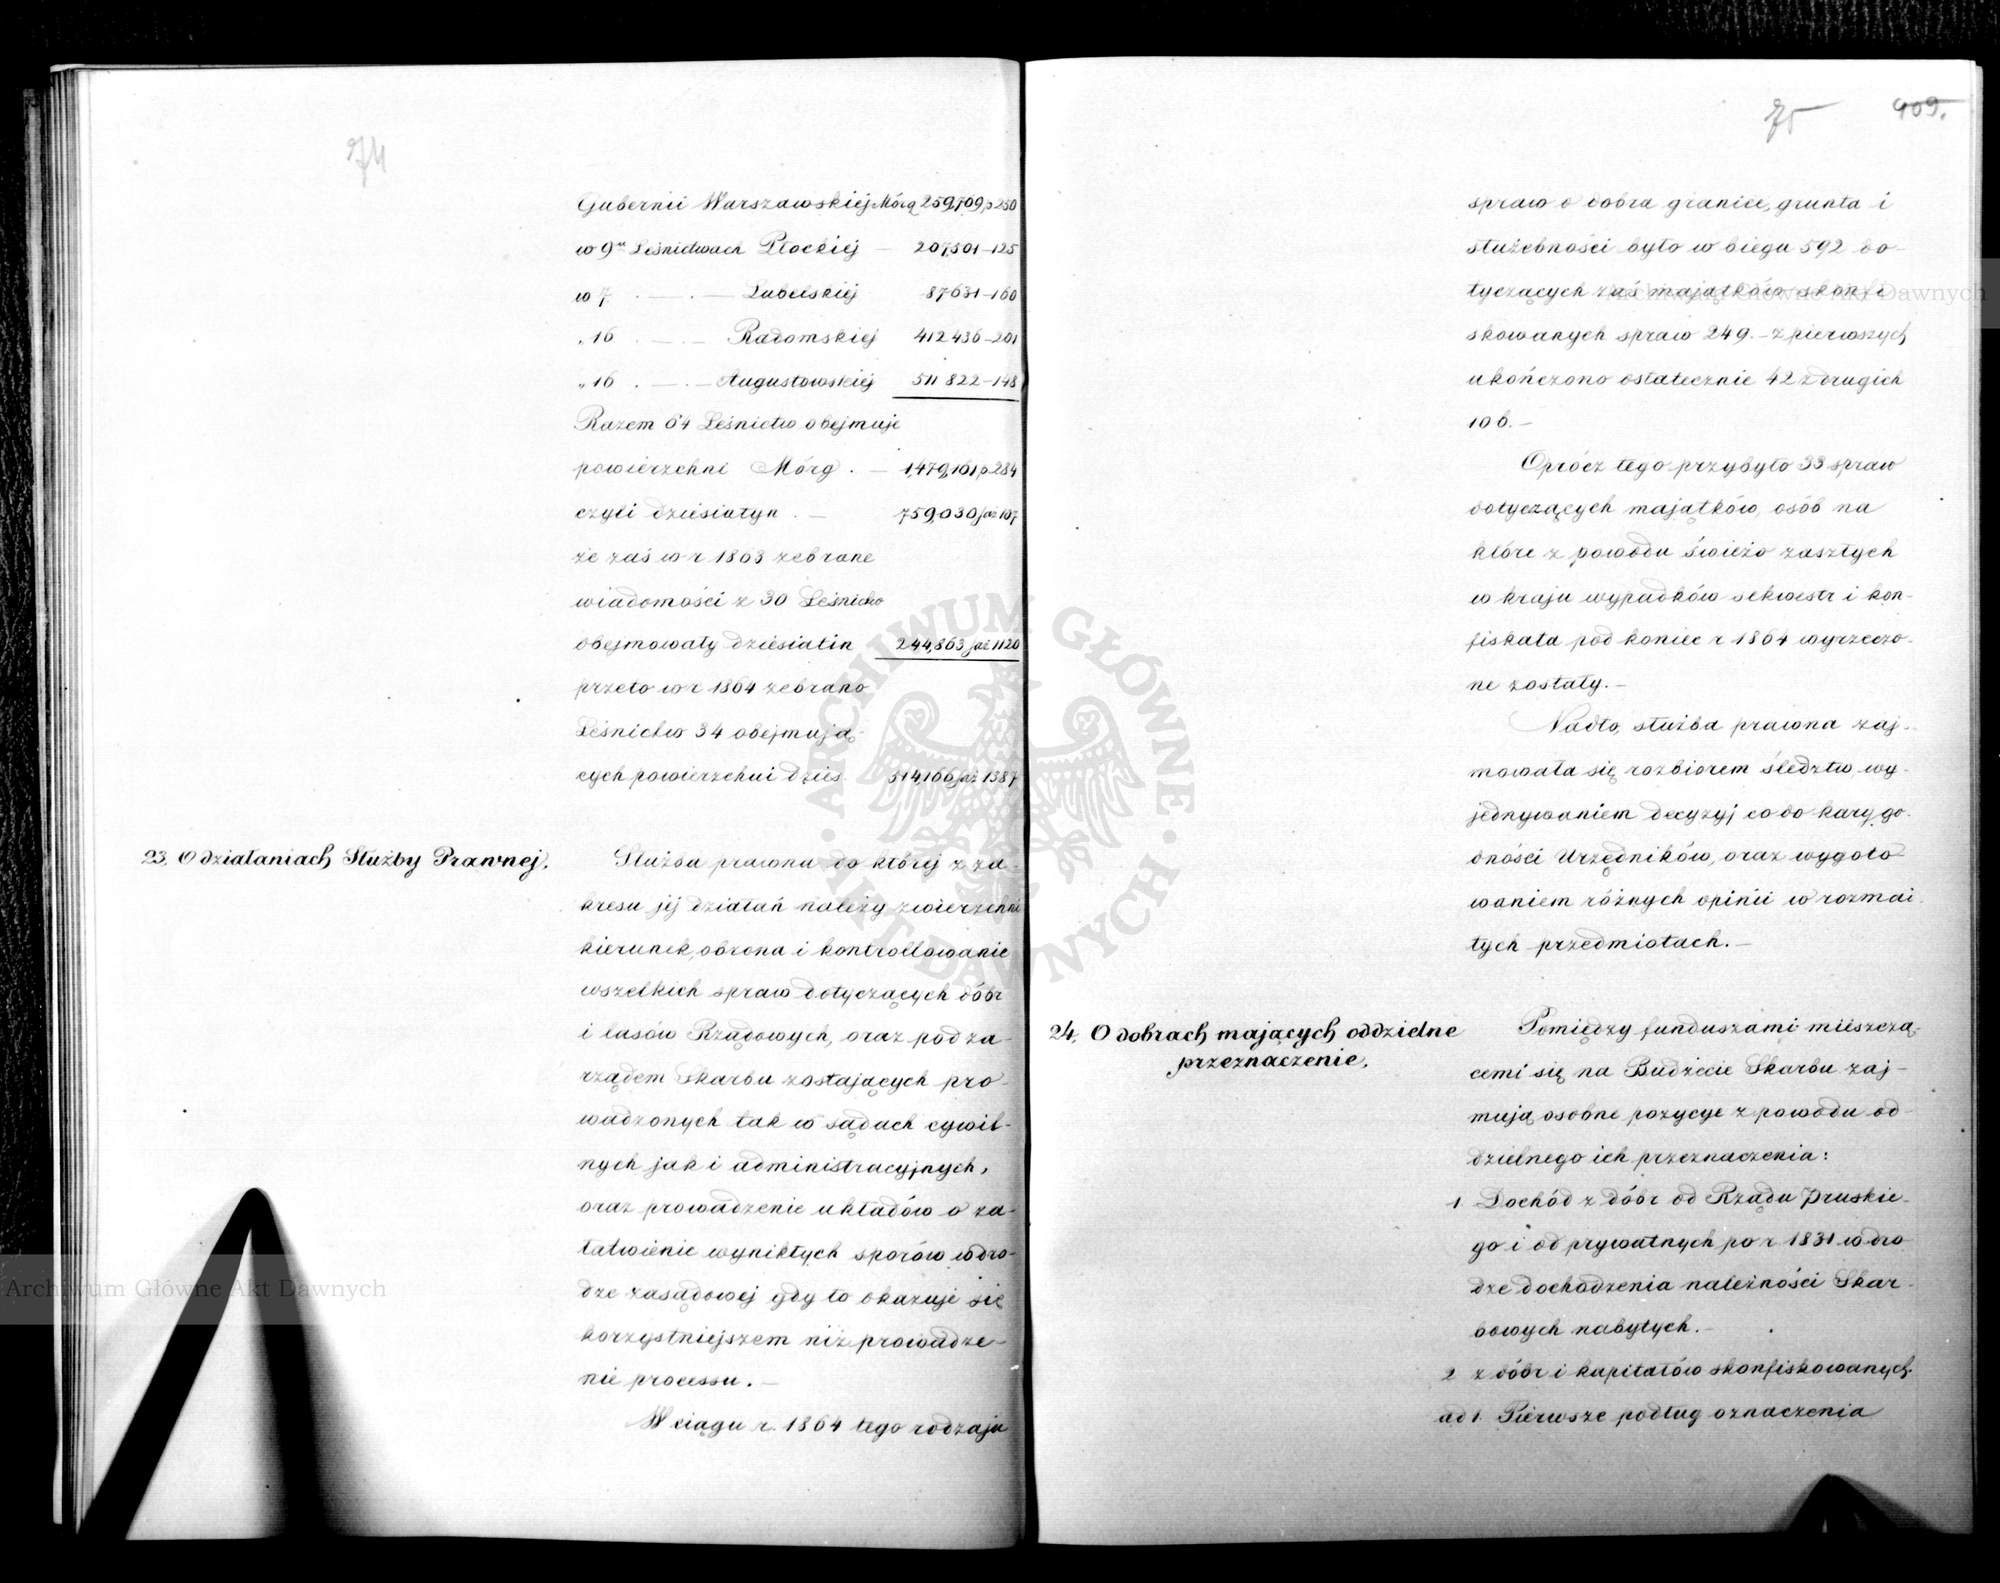 74
Gubernii Warszawskiej Mórg 259,709 p 250
w 9ᵘ Leśnictwach Płockiej — 207,501—125
w 7 . — . — Lubelskiej 87631—160
„ 16 . — . — Radomskiej 412436—201
„ 16 . — . — Augustowskiej 511822—148
Razem 64 Leśnictw obejmuje
powierzchni Mórg . — 1,479,101 p 284
czyli dziesiatyn . — 759,030 saż 107
że zaś w r 1863 zebrane
wiadomości z 30 Leśnictw
obejmowały dziesiatin 244,863 saż 1120
przeto w r 1864 zebrano
Leśnictw 34 obejmują-
cych powierzchni dzies. 514,166 saż 1387
23. O działaniach Służby Prawnej.
Służba prawna do której z za-
kresu jej działań należy zwierzchni
kierunek, obrona i kontrollowanie
wszelkich spraw dotyczących dóbr
i lasów Rządowych, oraz pod za-
rządem Skarbu zostających pro-
wadzonych tak w sądach cywil-
nych jak i administracyjnych,
oraz prowadzenie układów o za-
łatwienie wynikłych sporów w dro-
dze zasądowej gdy to okazuje się
korzystniejszem niż prowadze-
nie processu. —
W ciągu r. 1864 tego rodzaju
75 409.
spraw o dobra granice, grunta i
służebności było w biegu 592 do-
tyczących zaś majątków skonfi-
skowanych spraw 249. — z pierwszych
ukończono ostatecznie 42 z drugich
106. —
Oprócz tego przybyło 33 spraw
dotyczących majątków, osób na
które z powodu świeżo zaszłych
w kraju wypadków sekwestr i kon-
fiskata pod koniec r 1864 wyrzeczo-
ne zostały. —
Nadto, służba prawna zaj-
mowała się rozbiorem śledztw, wy-
jednywaniem decyzyj co do karygo-
dności Urzędników, oraz wygoto-
waniem różnych opinii w rozmai-
tych przedmiotach. —
24. O dobrach mających oddzielne
przeznaczenie.
Pomiędzy funduszami mieszczą-
cemi się na Budżecie Skarbu zaj-
mują osobne pozycye z powodu od-
dzielnego ich przeznaczenia:
1 Dochód z dóbr od Rządu Pruskie-
go i od prywatnych po r 1831 w dro
dze dochodzenia należności Skar-
bowych nabytych. —
2 z dóbr i kapitałów skonfiskowanych.
ad 1. Pierwsze podług oznaczenia
ARCHIWUM GŁÓWNE AKT DAWNYCH
Archiwum Główne Akt Dawnych
Archiwum Główne Akt Dawnych